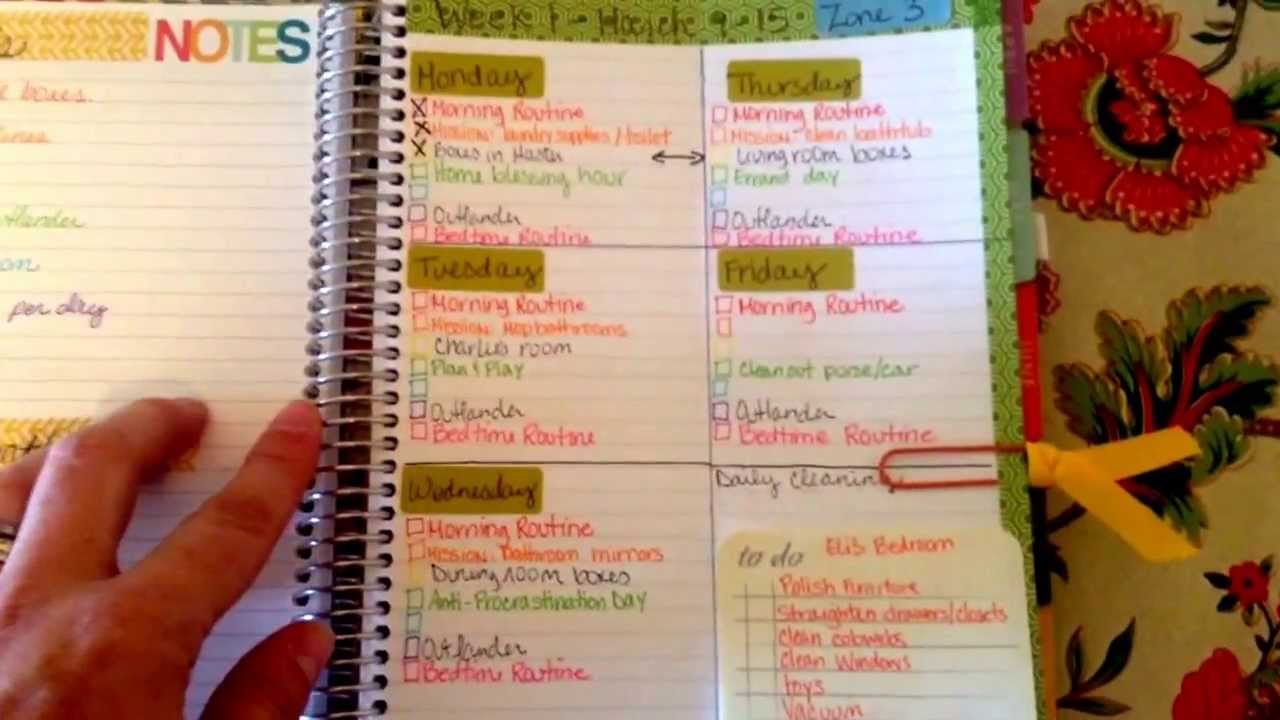 NOTES
boxes.
per day
Week 1 - March 9-15
Zone 3
Monday
Morning Routine
Mission: laundry supplies / toilet
Boxes in Master
Home blessing hour
Outlander
Bedtime Routine
Tuesday
Morning Routine
Mission: Mop bathrooms
Charlie's room
Plan & Play
Outlander
Bedtime Routine
Wednesday
Morning Routine
Mission: Bathroom mirrors
Dining room boxes
Anti-Procrastination Day
Outlander
Bedtime Routine
Thursday
Morning Routine
Mission - clean bathtub
Living room boxes
Errand day
Outlander
Bedtime Routine
Friday
Morning Routine
Clean out purse/car
Outlander
Bedtime Routine
Daily cleaning
to do
Eli's Bedroom
Polish Furniture
Straighten drawers/closets
Clean cobwebs
Clean Windows
toys
Vacuum